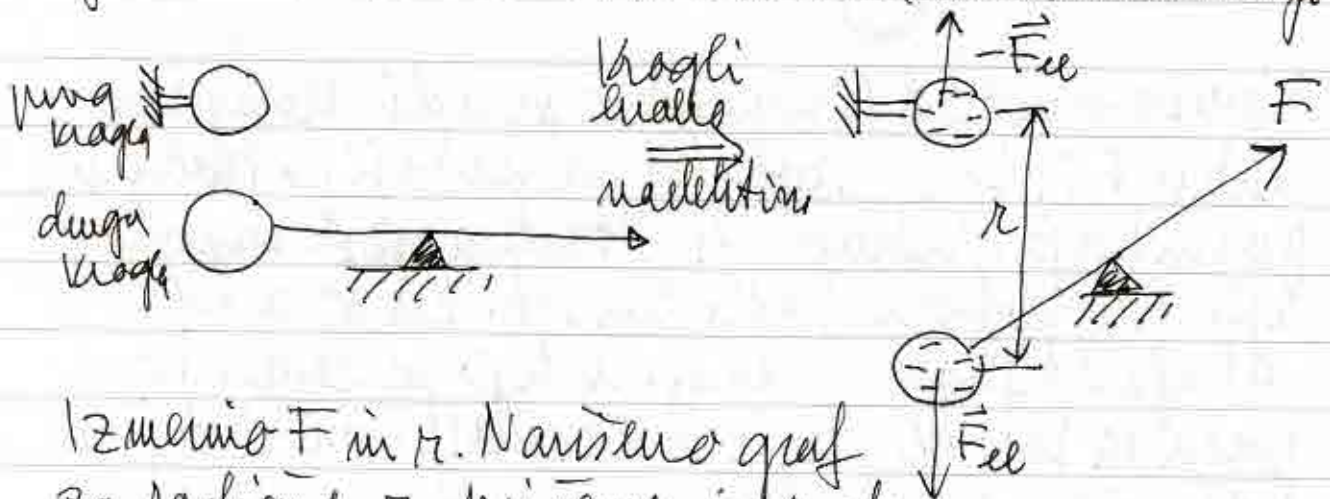 prva
krogla
druga
krogla
krogli
enako
naelektrimo
-F⃗el
F
r
F⃗el
Izmerimo F in r. Narišemo graf